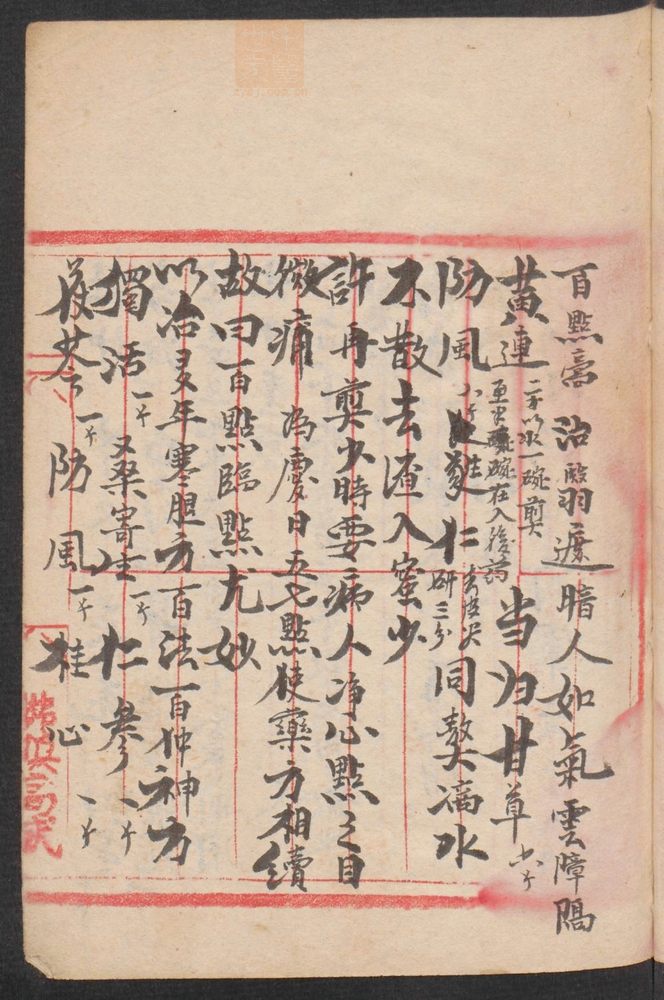 百點膏 治醫羽遮暗人如氣雲障隔
黃連 二才以水一碗煎 至半碗在入後藥 当归甘草 六才
防風 八才 蕤仁 去皮尖研三分 同熬滴水
不散去渣入蜜少
許再煎少時要病人净心點之目
微痛為度日五七點使藥力相續
故曰百點臨點尤妙
以冶多年寒胆方一百法一百仲神方
獨活 一才 又桑寄生 一才 仁參 一才
茯苓 一才 防風 一才 桂心 一才